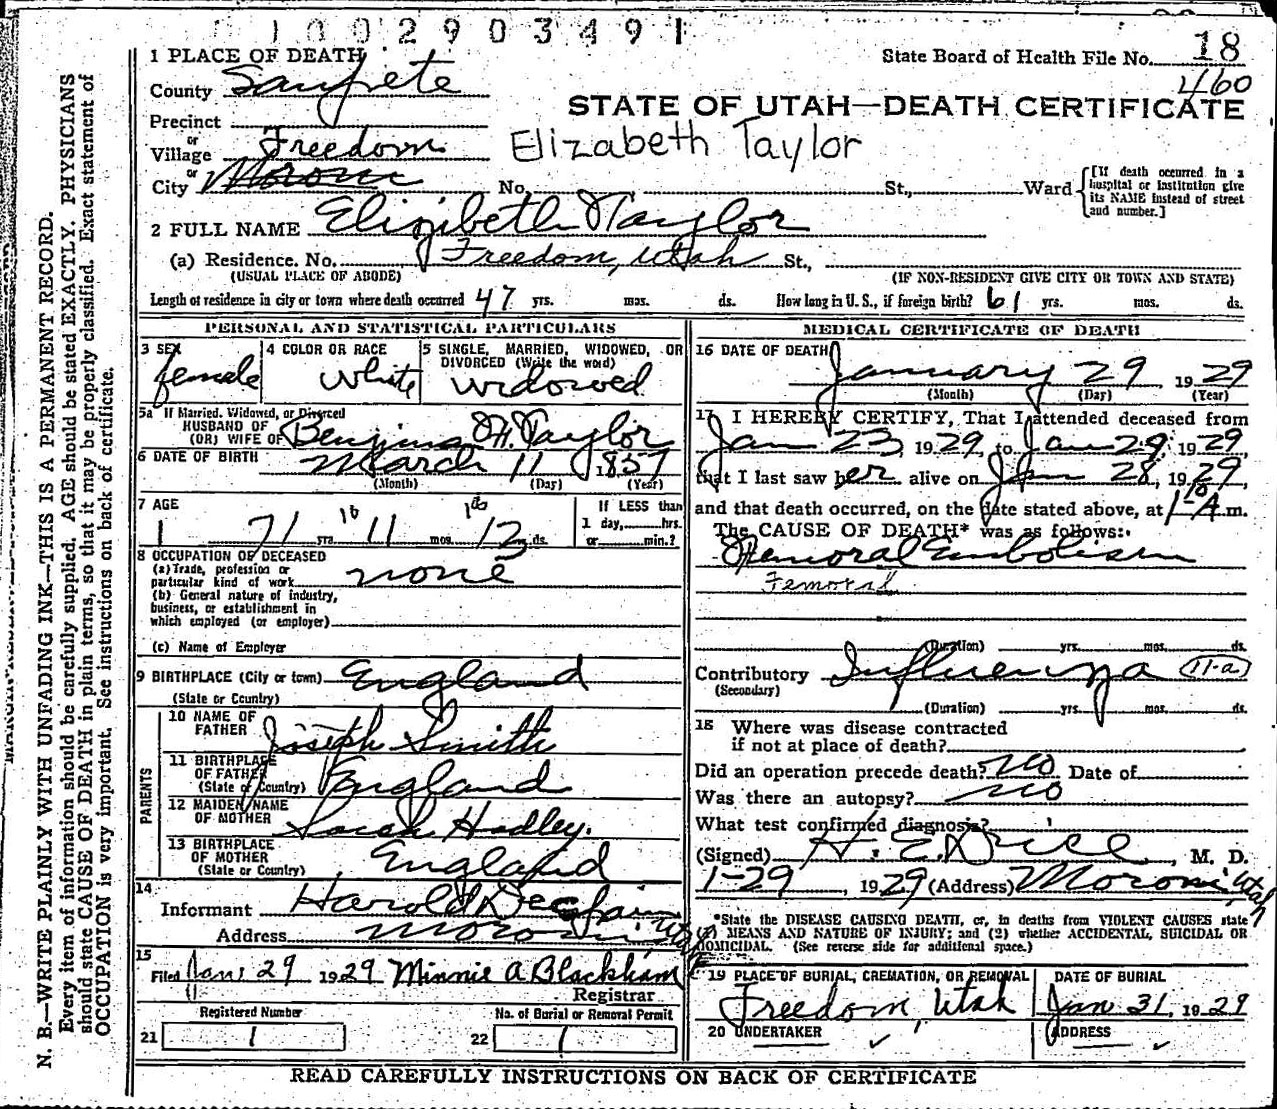 1002903491
1 PLACE OF DEATH
State Board of Health File No. 18
460
County Sanpete
STATE OF UTAH—DEATH CERTIFICATE
Precinct
or
Village Freedom
Elizabeth Taylor
or
City Moroni No. St., Ward [If death occurred in a hospital or institution give its NAME instead of street and number.]
2 FULL NAME Elizibeth Taylor
(a) Residence. No. Freedom, Utah St.,
(USUAL PLACE OF ABODE) (IF NON-RESIDENT GIVE CITY OR TOWN AND STATE)
Length of residence in city or town where death occurred 47 yrs. mos. ds. How long in U. S., if foreign birth? 61 yrs. mos. ds.
PERSONAL AND STATISTICAL PARTICULARS
3 SEX female
4 COLOR OR RACE white
5 SINGLE, MARRIED, WIDOWED, OR DIVORCED (Write the word) widowed
5a If Married, Widowed, or Divorced
HUSBAND OF
(OR) WIFE OF Benjima H. Taylor
6 DATE OF BIRTH March 11 1857
(Month) (Day) (Year)
7 AGE
71 yrs. 11 mos. ds.
If LESS than
1 day, hrs.
or min.?
8 OCCUPATION OF DECEASED
(a) Trade, profession or
particular kind of work none
(b) General nature of industry,
business, or establishment in
which employed (or employer)
(c) Name of Employer
9 BIRTHPLACE (City or town) England
(State or Country)
PARENTS
10 NAME OF
FATHER Joseph Smith
11 BIRTHPLACE
OF FATHER
(State or Country) England
12 MAIDEN NAME
OF MOTHER Sarah Hadley.
13 BIRTHPLACE
OF MOTHER
(State or Country) England
14
Informant Harold
Address Moroni Utah
15
Filed Jan. 29 1929 Minnie A Blackham
Registrar
Registered Number
21 1
No. of Burial or Removal Permit
22 1
MEDICAL CERTIFICATE OF DEATH
16 DATE OF DEATH January 29, 1929
(Month) (Day) (Year)
17 I HEREBY CERTIFY, That I attended deceased from
Jan 23, 1929, to Jan 29, 1929,
that I last saw her alive on Jan 28, 1929,
and that death occurred, on the date stated above, at A.m.
The CAUSE OF DEATH* was as follows:
Femoral Embolism
Femoral
(Duration) yrs. mos. ds.
Contributory Influenza 11-a
(Secondary)
(Duration) yrs. mos. ds.
18 Where was disease contracted
if not at place of death?
Did an operation precede death? No Date of
Was there an autopsy? no
What test confirmed diagnosis?
(Signed) H. E. Drill, M. D.
1-29, 1929 (Address) Moroni Utah
*State the DISEASE CAUSING DEATH, or, in deaths from VIOLENT CAUSES state
(1) MEANS AND NATURE OF INJURY; and (2) whether ACCIDENTAL, SUICIDAL OR
HOMICIDAL. (See reverse side for additional space.)
19 PLACE OF BURIAL, CREMATION, OR REMOVAL
Freedom, Utah
DATE OF BURIAL
Jan 31, 1929
20 UNDERTAKER
ADDRESS
READ CAREFULLY INSTRUCTIONS ON BACK OF CERTIFICATE
N. B.—WRITE PLAINLY WITH UNFADING INK—THIS IS A PERMANENT RECORD.
Every item of information should be carefully supplied. AGE should be stated EXACTLY. PHYSICIANS
should state CAUSE OF DEATH in plain terms, so that it may be properly classified. Exact statement of
OCCUPATION is very important. See instructions on back of certificate.